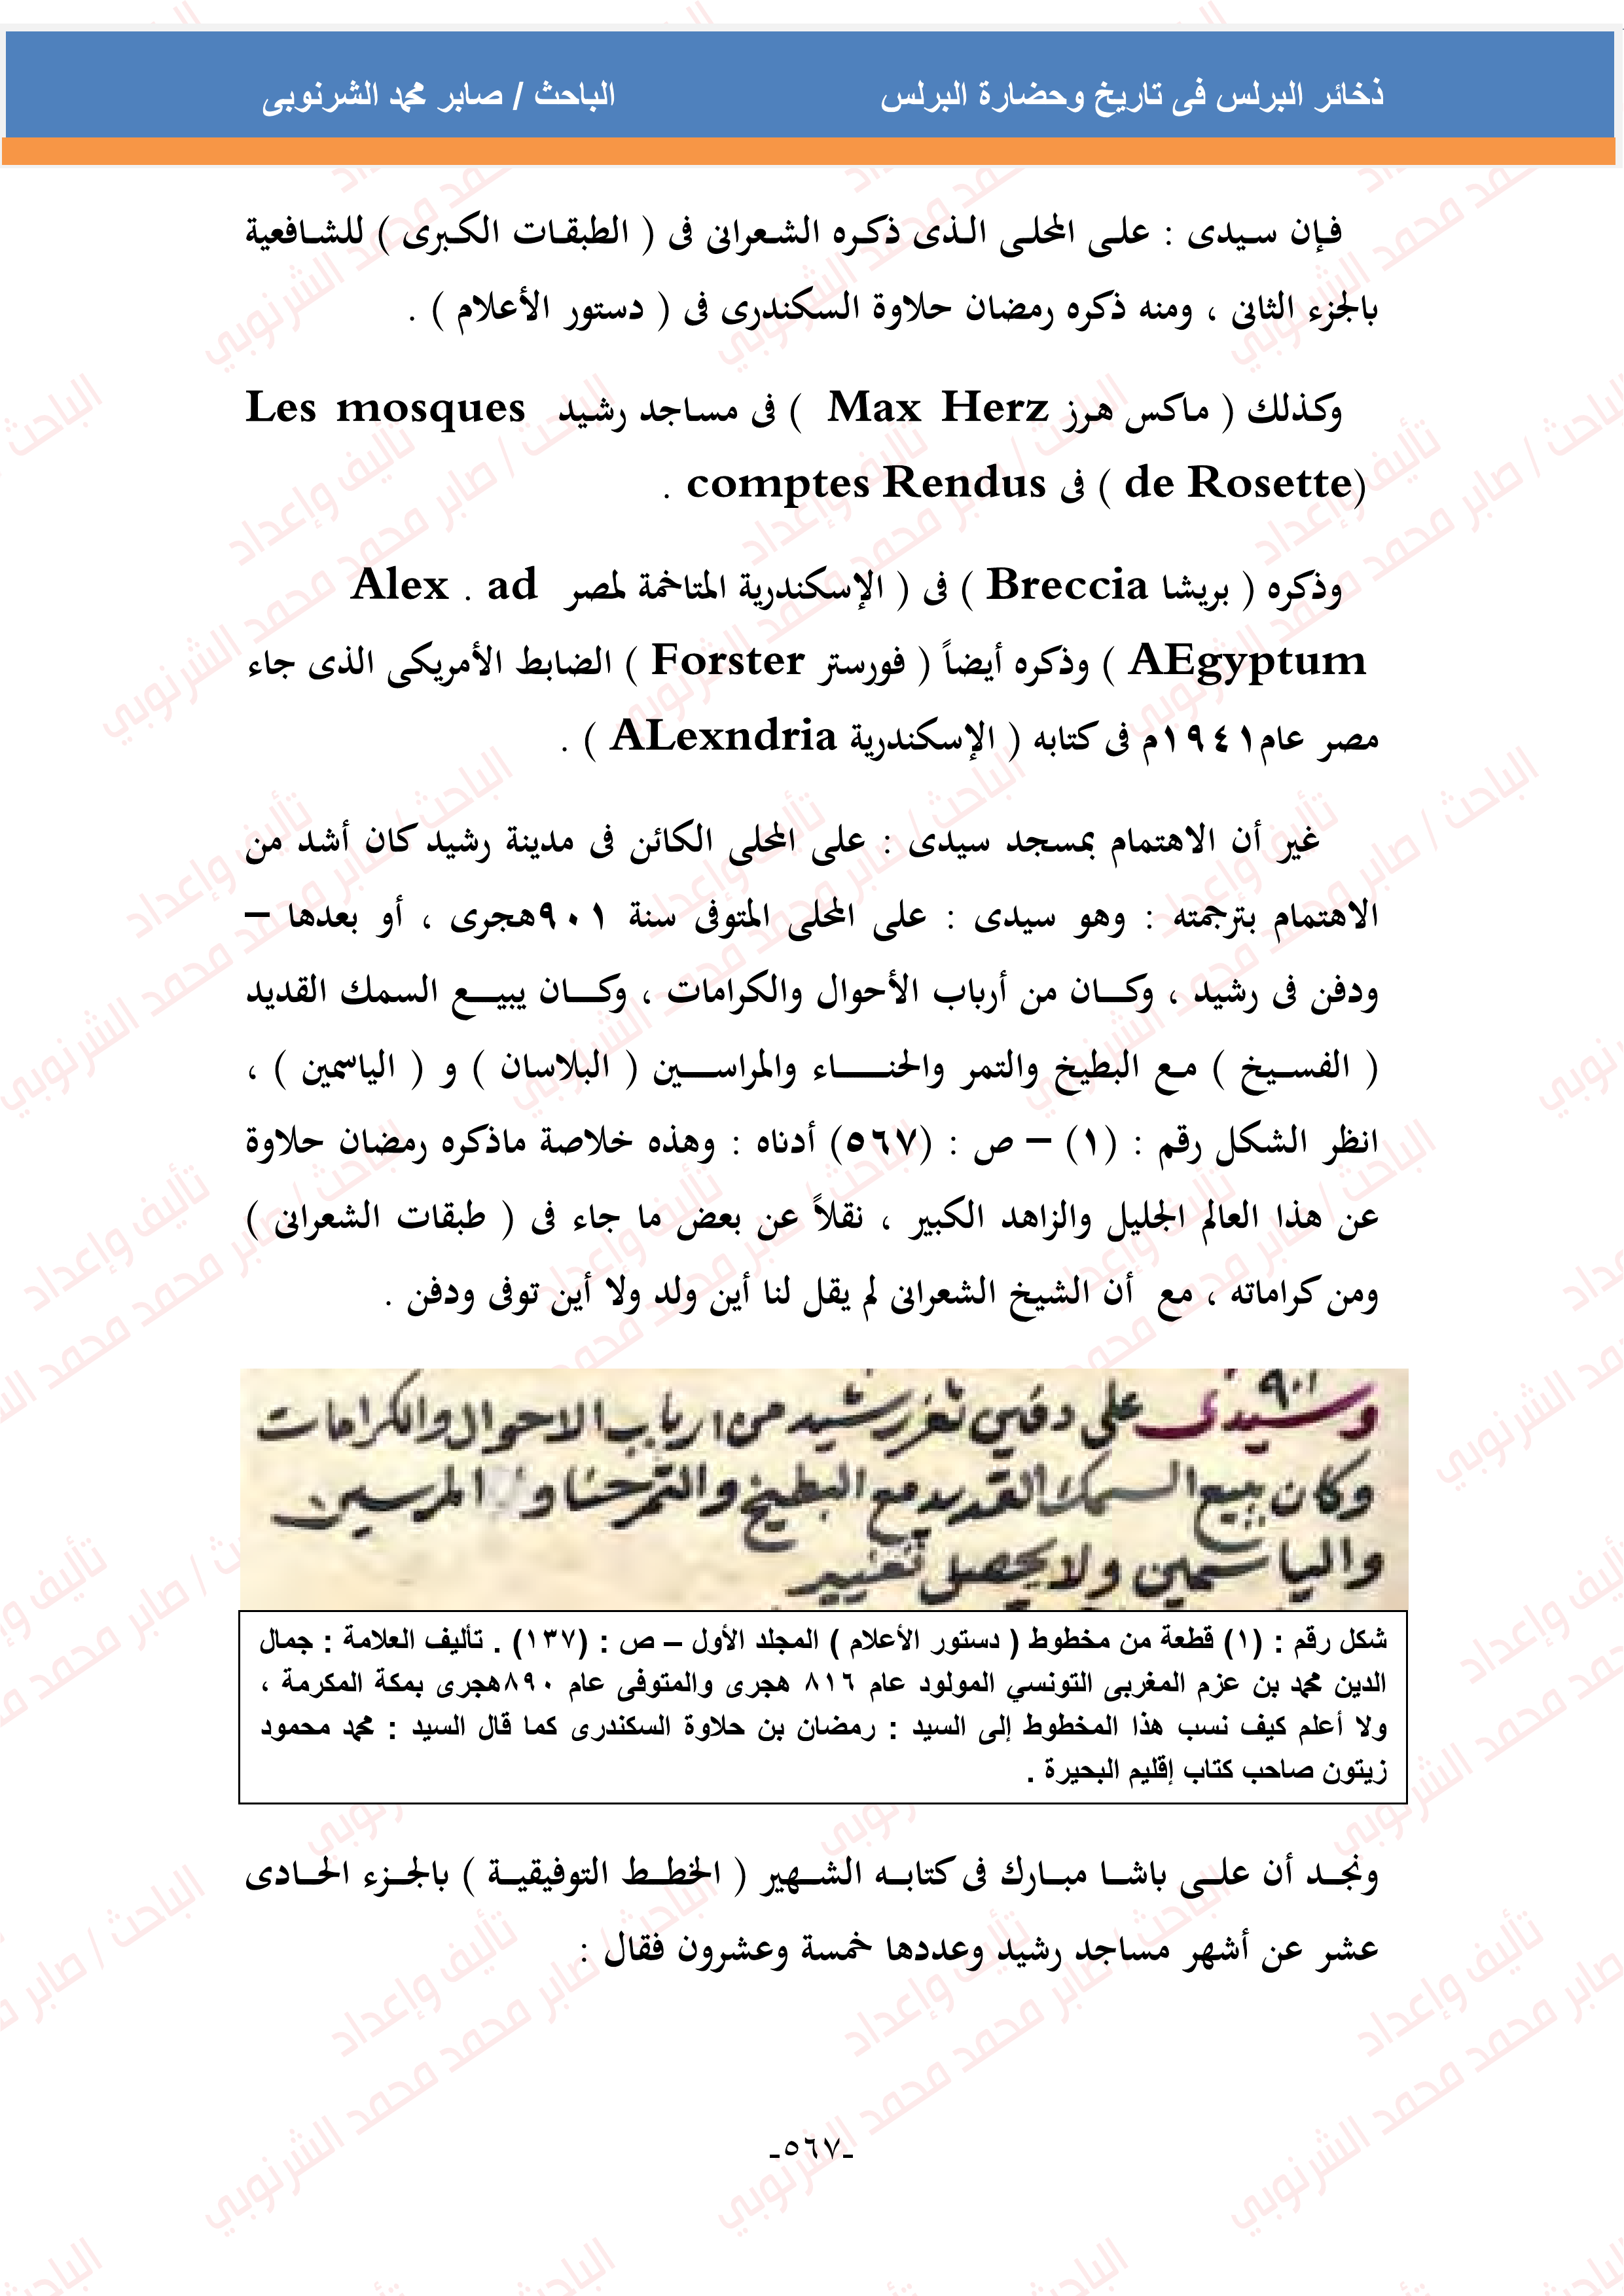 ذخائر البرلس فى تاريخ وحضارة البرلس الباحث / صابر محمد الشرنوبى
فإن سيدى : على المحلى الذى ذكره الشعرانى فى ( الطبقات الكبرى ) للشافعية
بالجزء الثانى ، ومنه ذكره رمضان حلاوة السكندرى فى ( دستور الأعلام ) .
وكذلك ( ماكس هرز Max Herz ) فى مساجد رشيد Les mosques
(de Rosette ) فى comptes Rendus .
وذكره ( بريشا Breccia ) فى ( الإسكندرية المتاخمة لمصر Alex . ad
AEgyptum ) وذكره أيضاً ( فورستر Forster ) الضابط الأمريكى الذى جاء
مصر عام١٩٤١م فى كتابه ( الإسكندرية ALexndria ) .
غير أن الاهتمام بمسجد سيدى : على المحلى الكائن فى مدينة رشيد كان أشد من
الاهتمام بترجمته : وهو سيدى : على المحلى المتوفى سنة ٩٠١هجرى ، أو بعدها –
ودفن فى رشيد ، وكان من أرباب الأحوال والكرامات ، وكان يبيع السمك القديد
( الفسيخ ) مع البطيخ والتمر والحناء والمراسين ( البلاسان ) و ( الياسمين ) ،
انظر الشكل رقم : (١) – ص : (٥٦٧) أدناه : وهذه خلاصة ماذكره رمضان حلاوة
عن هذا العالم الجليل والزاهد الكبير ، نقلاً عن بعض ما جاء فى ( طبقات الشعرانى )
ومن كراماته ، مع أن الشيخ الشعرانى لم يقل لنا أين ولد ولا أين توفى ودفن .
٩٠١
وسيدى على دفين ثغر رشيد من ارباب الاحوال والكرامات
وكان يبيع السمك القديد مع البطيخ والتمر حنا و المرسين
والياسمين ولا يحصل تغيير
شكل رقم : (١) قطعة من مخطوط ( دستور الأعلام ) المجلد الأول – ص : (١٣٧) . تأليف العلامة : جمال
الدين محمد بن عزم المغربى التونسي المولود عام ٨١٦ هجرى والمتوفى عام ٨٩٠هجرى بمكة المكرمة ،
ولا أعلم كيف نسب هذا المخطوط إلى السيد : رمضان بن حلاوة السكندرى كما قال السيد : محمد محمود
زيتون صاحب كتاب إقليم البحيرة .
ونجد أن على باشا مبارك فى كتابه الشهير ( الخطط التوفيقية ) بالجزء الحادى
عشر عن أشهر مساجد رشيد وعددها خمسة وعشرون فقال :
-٥٦٧-
تأليف وإعداد
الباحث / صابر محمد محمد الشرنوبي